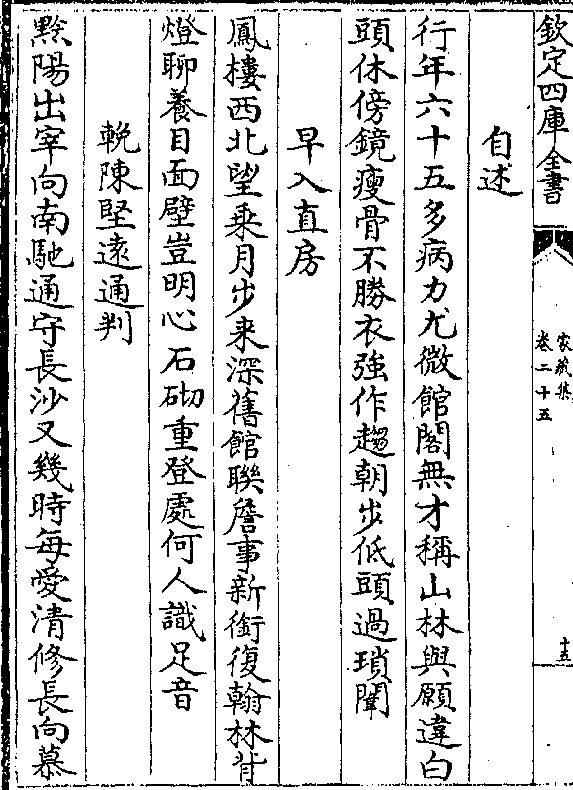 欽定四庫全書
家蔵集
卷二十五
十五
自述
行年六十五多病力尤微館閣無才稱山林與願違白
頭休傍鏡瘦骨不勝衣強作趨朝步低頭過瑣闈
早入直房
鳳樓西北望乗月步来深舊館聯詹事新銜復翰林背
燈聊養目面壁豈明心石砌重登處何人識足音
輓陳堅逺通判
黔陽出宰向南馳通守長沙又幾時每愛清修長向慕